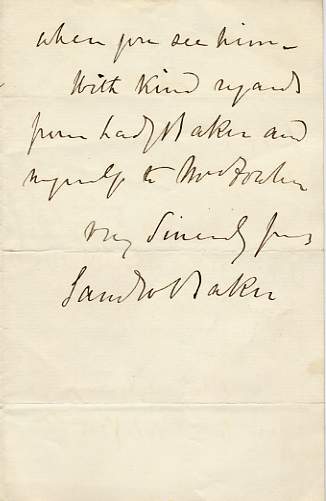 when you see him –
With kind regards
from Lady Baker and
myself to Mrs
Very Sincerely yours
Saml W Baker